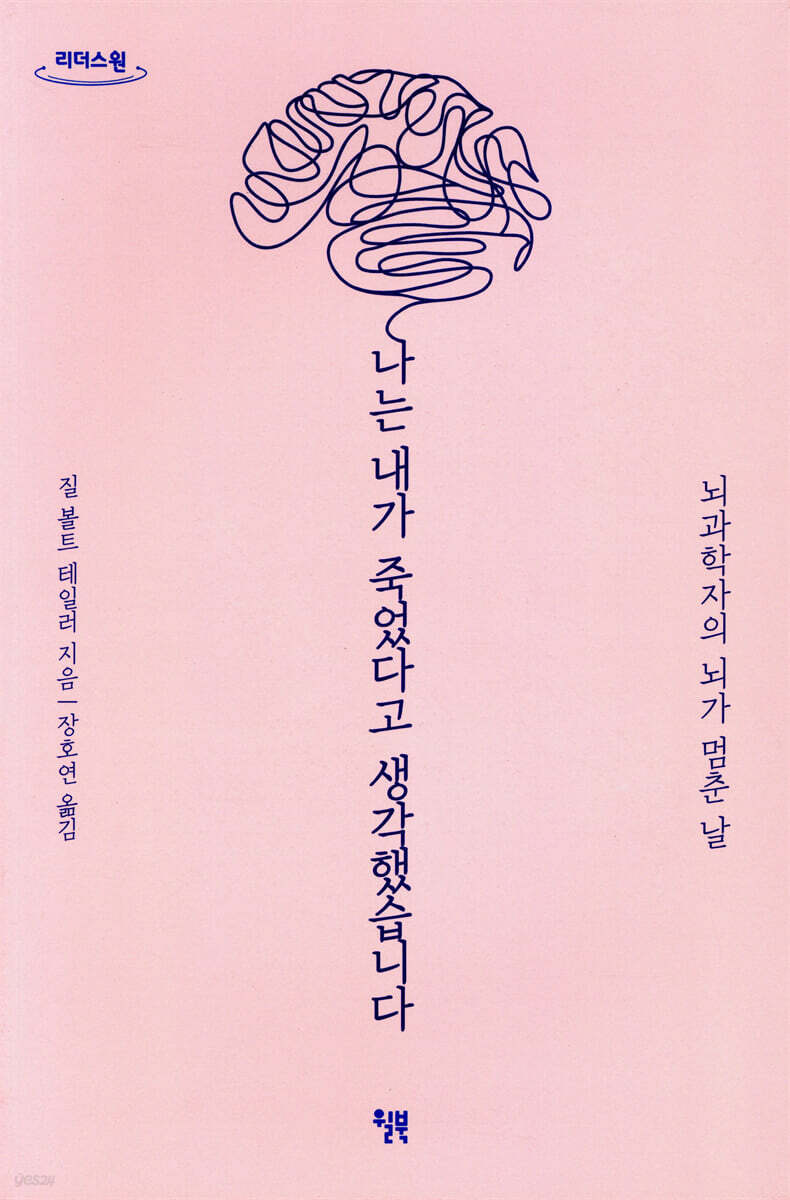 리더스원
나는 내가 죽었다고 생각했습니다
뇌과학자의 뇌가 멈춘 날
질 볼트 테일러 지음 | 장호연 옮김
윌북
yes24